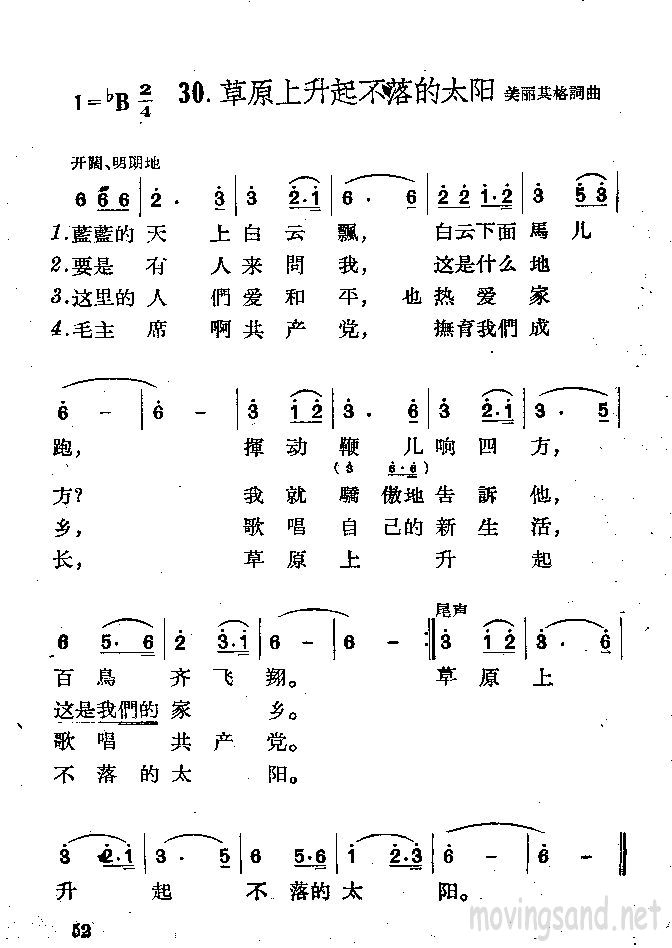 1=♭B 2/4 30. 草原上升起不落的太阳 美丽其格詞曲
开闊、明朗地
6 6 6 | 2 · 3 | 3 2·1 | 6 · 6 | 2 2 1·2 | 3 5 3 |
1.藍藍的天 上白云飄, 白云下面馬儿
2.要是有 人来問我, 这是什么地
3.这里的人 們爱和平, 也热爱家
4.毛主席 啊共产党, 撫育我們成
6 - | 6 - | 3 1 2 | 3 · 6 | 3 2·1 | 3 · 5 |
跑, 揮动鞭儿响四方,
(3 6·6)
方? 我就驕傲地告訴他,
乡, 歌唱自己的新生活,
长, 草原上升起
尾声
6 5·6 | 2 3·1 | 6 - | 6 - :‖ 3 1 2 | 3 · 6 |
百鳥齐飞翔。 草原上
这是我們的家乡。
歌唱共产党。
不落的太阳。
3 2·1 | 3 · 5 | 6 5·6 | 1 2·3 | 6 - | 6 - ‖
升起不落的太阳。
52
movingsand.net